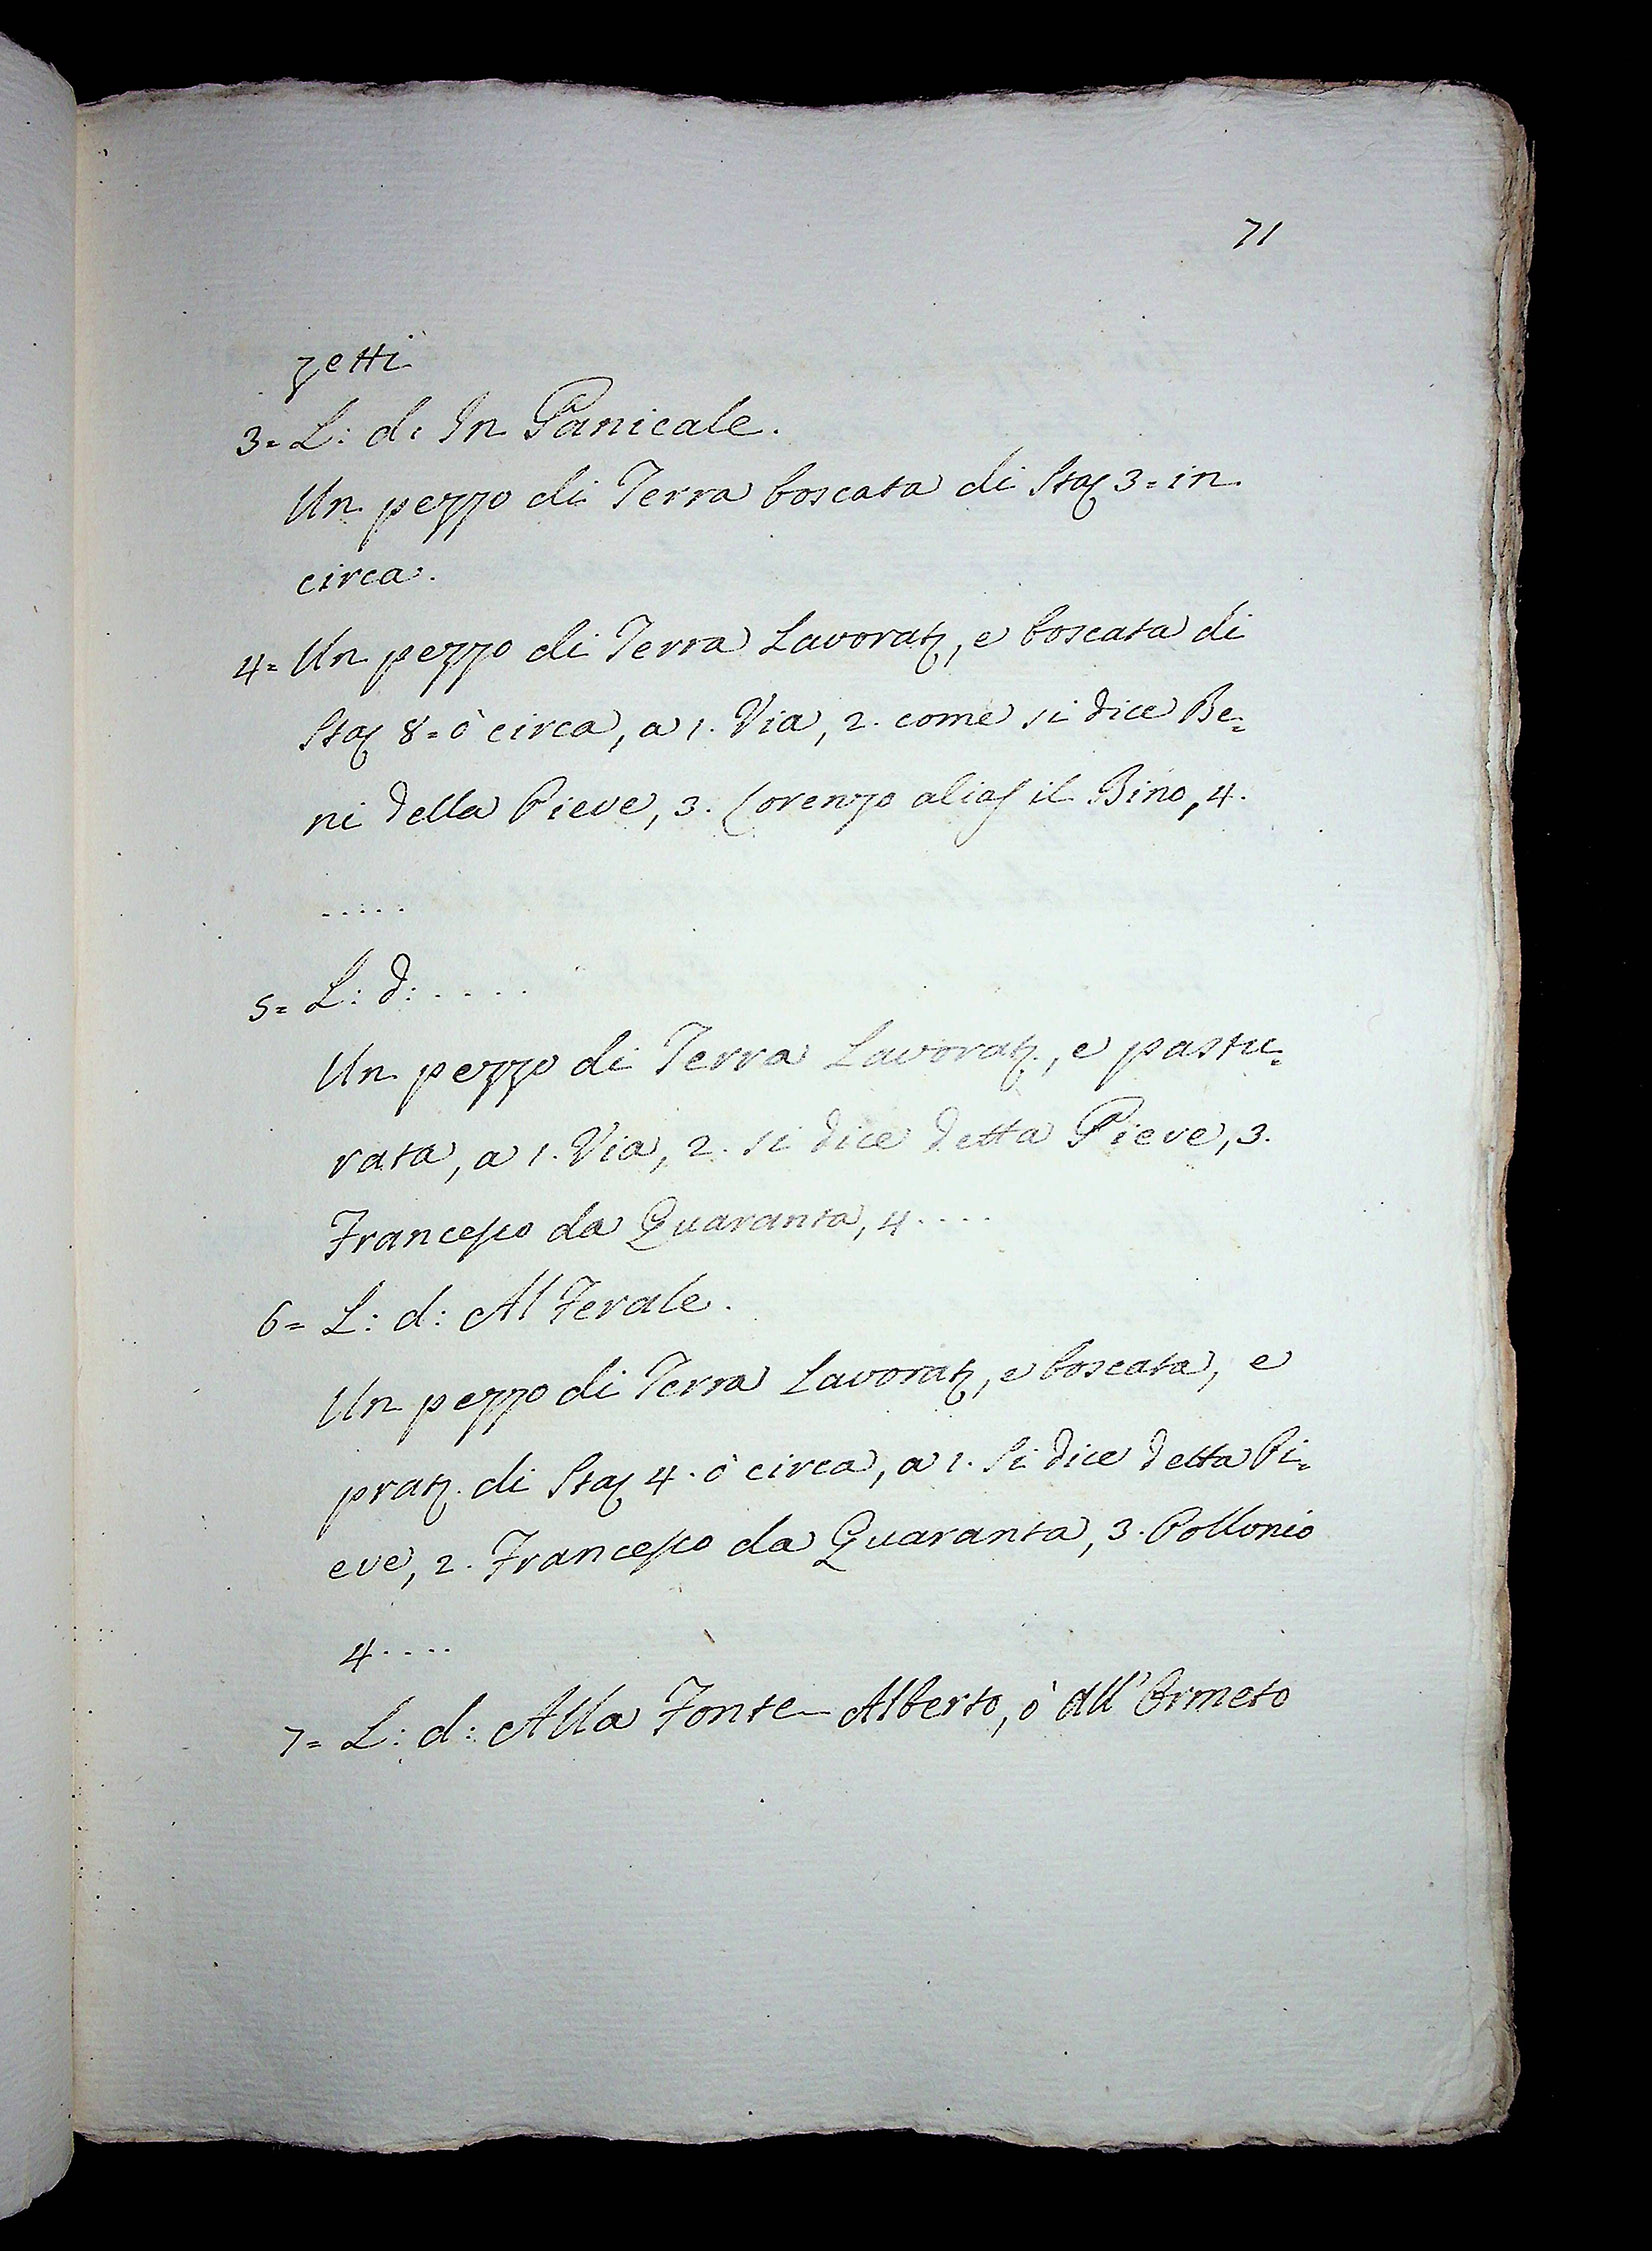 71
zetti
3= L: d: In Panicale.
Un pezzo di Terra boscata di Staj 3= in
circa.
4= Un pezzo di Terra Lavoratz, e boscata di
Staj 8= ò circa, a 1. Via, 2. come si dice Be=
ni della Pieve, 3. Lorenzo alias il Bino, 4.
.....
5= L: d: ....
Un pezzo di Terra Lavoratz., e pastu=
rata, a 1. Via, 2. si dice detta Pieve, 3.
Francesco da Quaranta, 4....
6= L: d: Al Ferale.
Un pezzo di Terra Lavoratz, e boscata, e
pratz. di Staj 4. ò circa, a 1. Si dice detta Pi=
eve, 2. Francesco da Quaranta, 3. Pollonio
4....
7= L: d: Alla Fonte Alberto, ò all'Ormeto